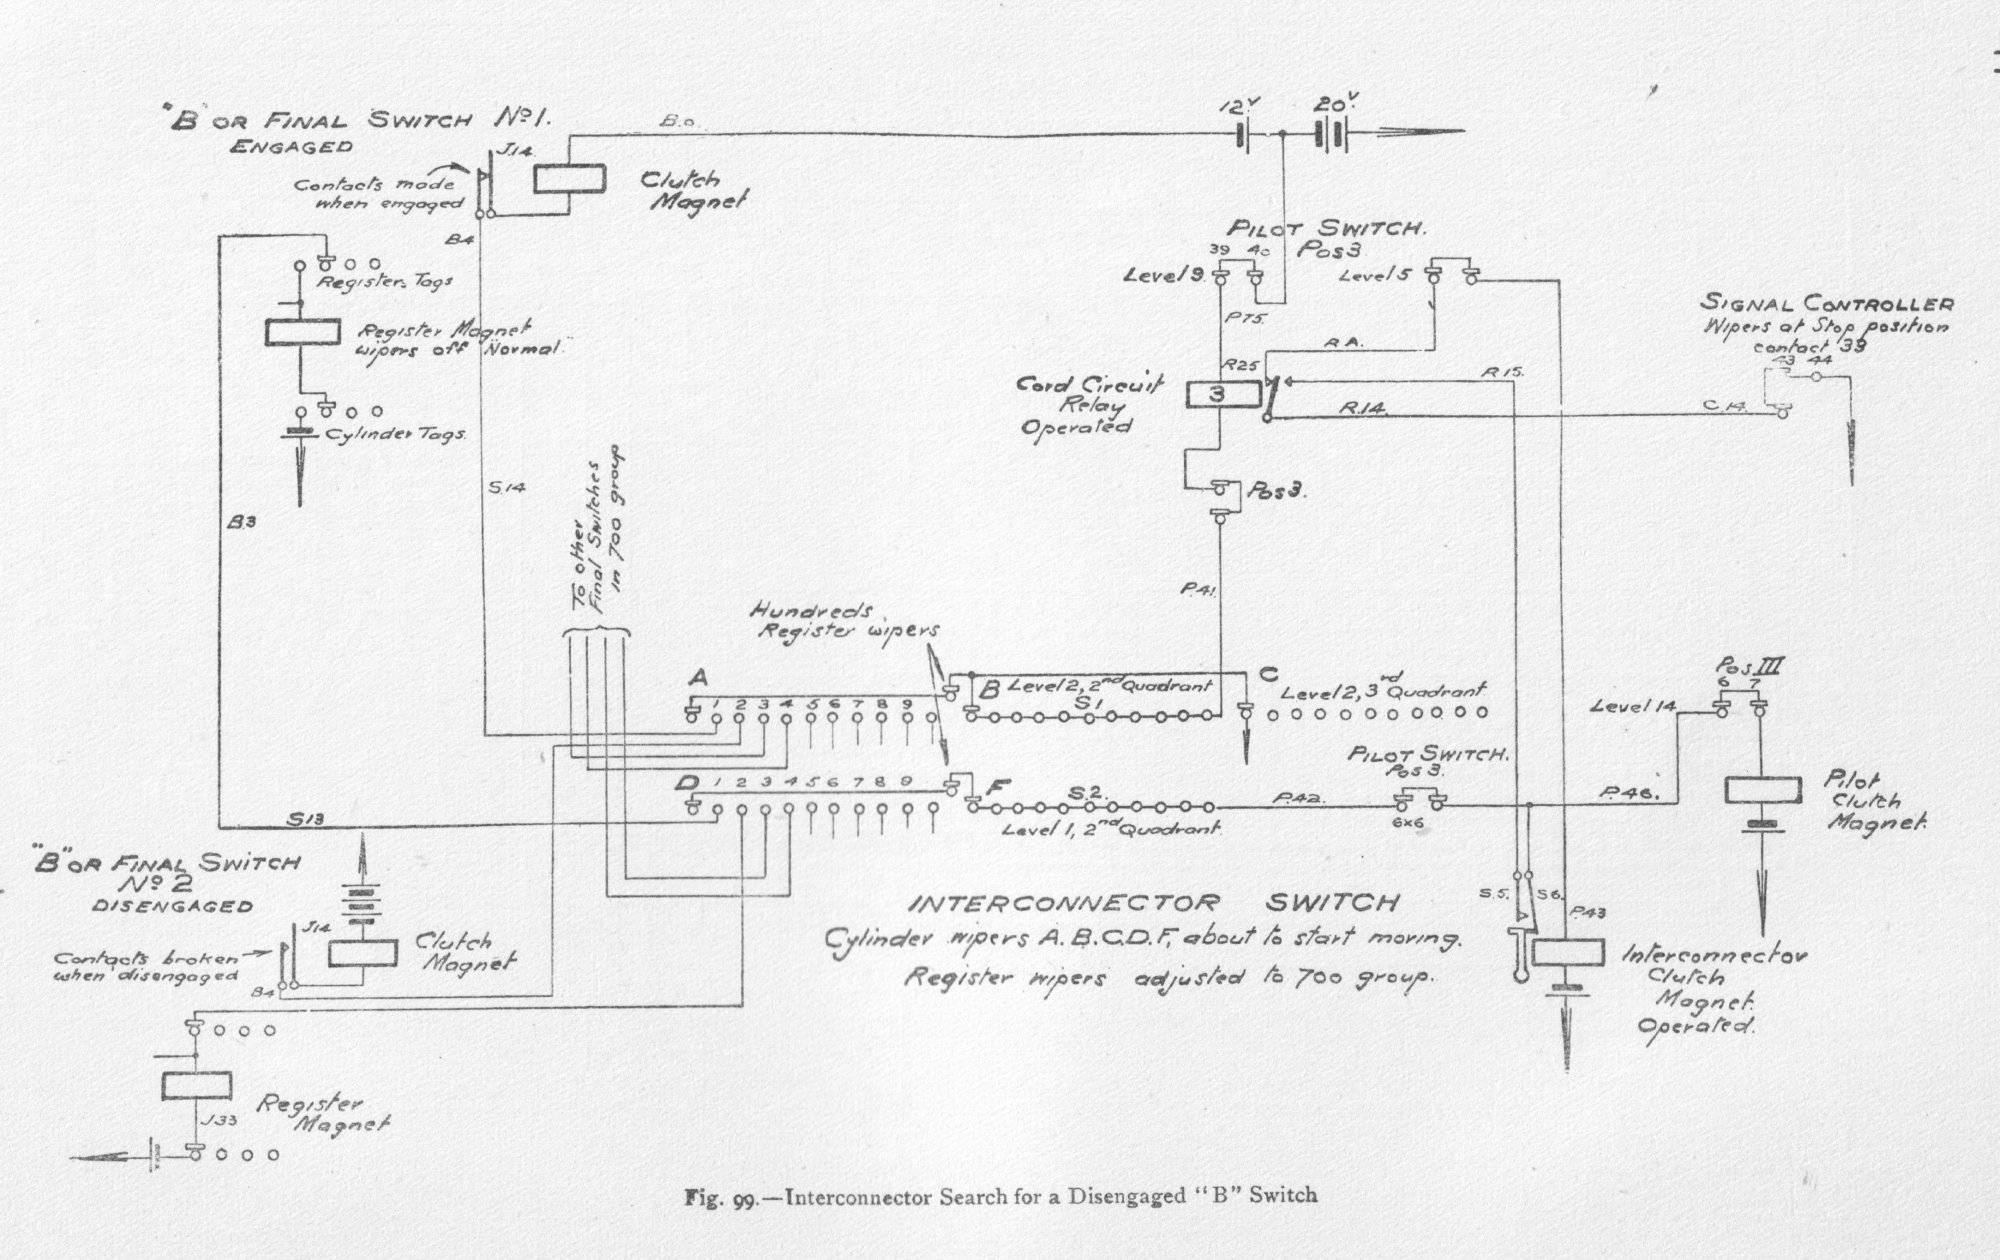 "B" OR FINAL SWITCH No 1.
ENGAGED
J.14.
Contacts made
when engaged
Clutch
Magnet
B4
12V
20V
PILOT SWITCH.
39 40 Pos 3
Level 9.
Level 5
P75.
R25
R.15.
R.14.
C.14.
Cord Circuit
Relay
Operated
3
SIGNAL CONTROLLER
Wipers at Stop position
contact 39
43 44
Register Tags
Register Magnet
wipers off Normal.
Cylinder Tags.
B.3
S.14
To other
Final Switches
in 700 group
Pos 3.
P.41.
Hundreds
Register wipers
A
1 2 3 4 5 6 7 8 9
B
Level 2, 2nd Quadrant
S1
C
Level 2, 3rd Quadrant
Pos III
6 7
Level 14
D
1 2 3 4 5 6 7 8 9
F
S.2.
Level 1, 2nd Quadrant.
P.42.
PILOT SWITCH.
Pos 3.
6x6
P.46.
Pilot
Clutch
Magnet.
S13
"B" OR FINAL SWITCH
No 2
DISENGAGED
J14.
Contacts broken
when disengaged
B4
Clutch
Magnet
INTERCONNECTOR SWITCH
Cylinder wipers A.B.C.D.F, about to start moving.
Register wipers adjusted to 700 group.
S.5.
S6.
P.43
Interconnector
Clutch
Magnet.
Operated.
Register
Magnet
J33
Fig. 99.—Interconnector Search for a Disengaged "B" Switch